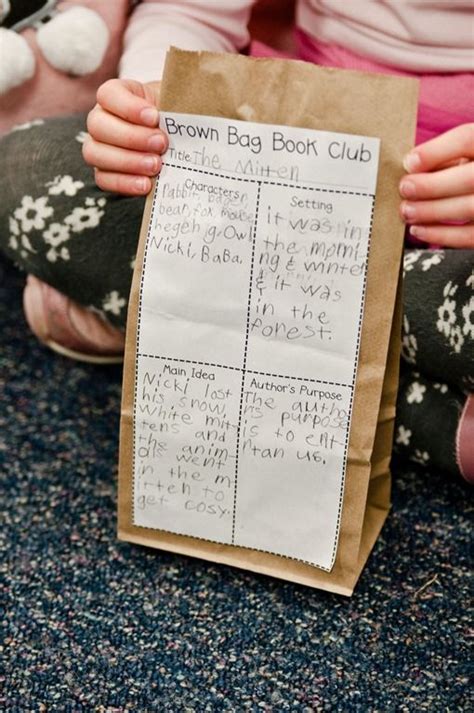 Brown Bag Book Club
Title: The Mitten
Characters
Rabbit, bagen,
bear, fox, mouse
hegehg, Owl
Nicki, BaBa.
Setting
it was in
the morni
ng & winter
& it was
in the
forest.
Main Idea
Nicki lost
his snow
white mit
tens and
the anim
als went
in the m
itten to
get cosy.
Author's Purpose
The autho
rs purpose
is to ent-
ntan us.